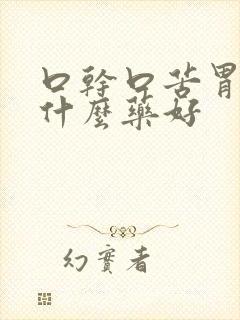 口幹口苦胃
什麼藥好
幻實者